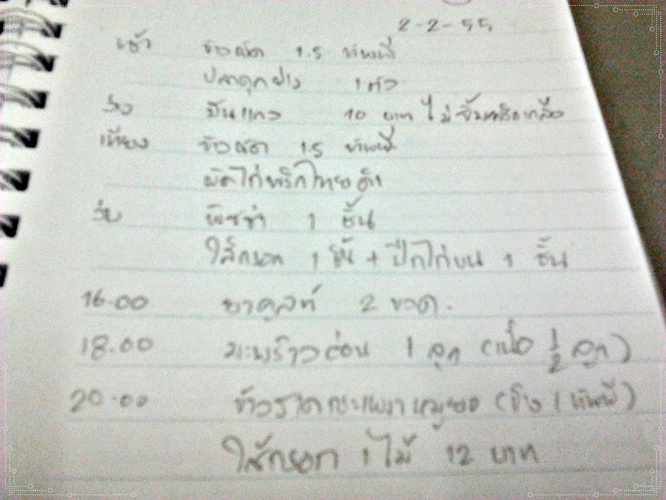 2-2-55
เช้า ข้าวผัด 1.5 ทัพพี
ปลาดุกย่าง 1 ตัว
ว่าง มันแกว 10 บาท ไม่จิ้มพริกเกลือ
เที่ยง ข้าวผัด 1.5 ทัพพี
ผัดไก่พริกไทยดำ
พิซซ่า 1 ชิ้น
ไส้กรอก 1 ชิ้น + ปีกไก่บน 1 ชิ้น
16.00 ยาคูลท์ 2 ขวด.
18.00 มะพร้าวอ่อน 1 ลูก (เนื้อ 1/2 ลูก)
20.00 ข้าวราดกะเพราหมูยอ (ข้าว 1 ทัพพี)
ไส้กรอก 1 ไม้ 12 บาท